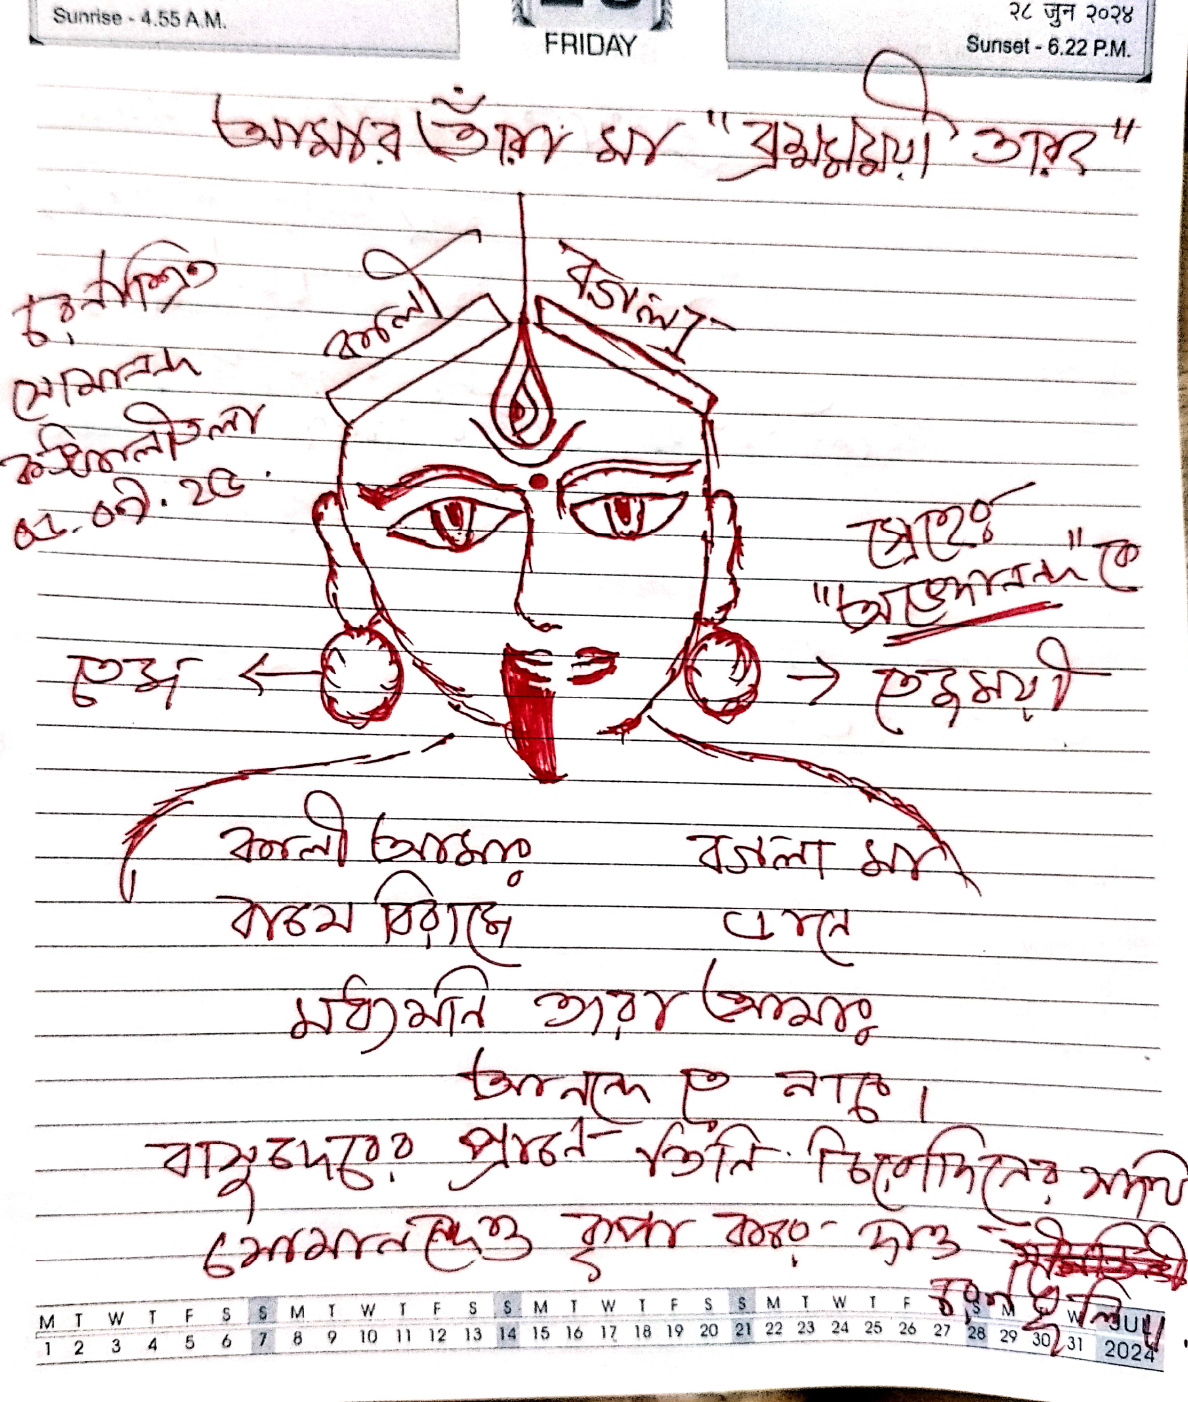 Sunrise - 4.55 A.M.
FRIDAY
२८ जुन २०२४
Sunset - 6.22 P.M.
আমার তাঁরা মা "ব্রহ্মময়ী তারা"
কালী
বগলা
চরণাশ্রিত
সোমানন্দ
কঙ্কালীতলা
স্নেহের
"অভেদানন্দ" কে
তেজ ←
→ তেজময়ী
কালী আমার বগলা মা
বামে বিরাজে
মধ্যমনি তারা আমার
আনন্দে তে নাচে।
বাসুদেবের প্রানে তিঁনি চিরোদিনের সাথী
সোমানন্দেও কৃপা করে দাও
চরণ ধুলি॥
M T W T F S S M T W T F S S M T W T F S S M T W T F S S M T W JUL
1 2 3 4 5 6 7 8 9 10 11 12 13 14 15 16 17 18 19 20 21 22 23 24 25 26 27 28 29 30 31 2024